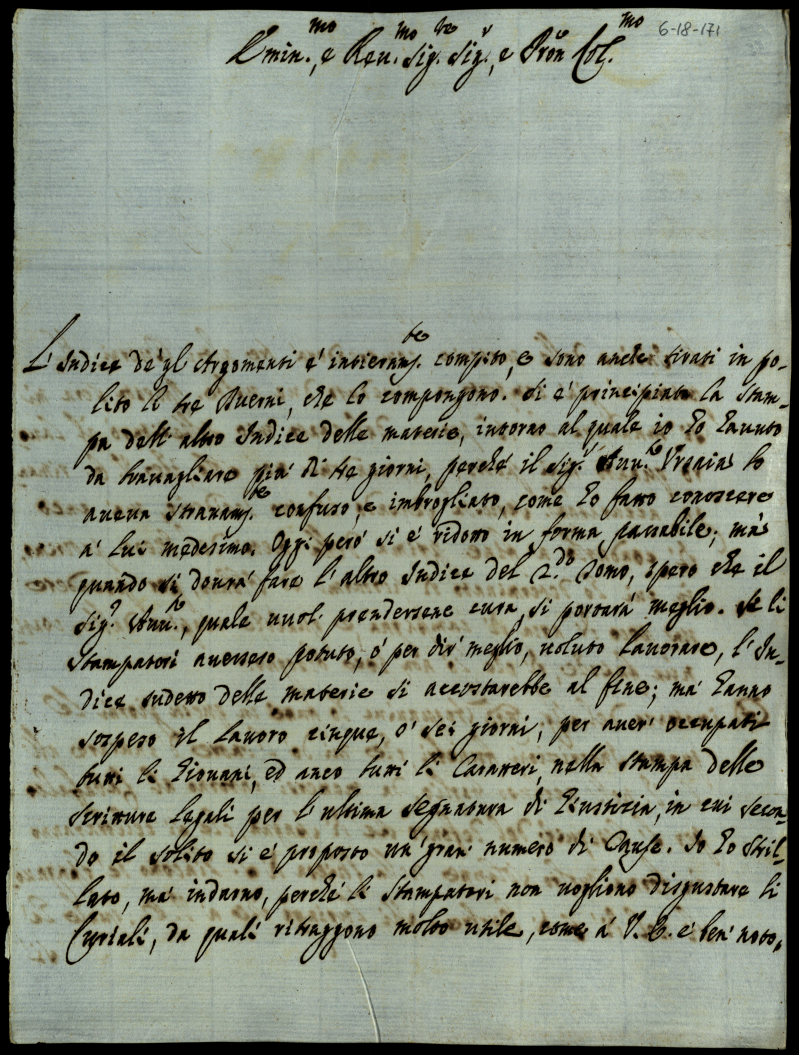 6-18-171
Emin.mo, e Reu.mo Sig.re Sig.r, e Pron Col.mo
L'Indice de gl'Argomenti è intieram.te compito, e sono anche tirati in po-
lito li tre Duerni, che lo compongono. Si è principiata la stam-
pa dell'altro Indice delle materie, intorno al quale io hò hauuto
da trauagliare più di tre giorni, perché il Sig.r Auu.to lo
aueua stranam.te confuso, e imbrogliato, come hò fatto conoscere
à lui medesimo. Oggi però si è ridotto in forma passabile; mà
quando si dourà fare l'altro Indice del 2.do Tomo, spero che il
Sig.r Auu.to, quale uuol prendersene cura, si porterà meglio. Se li
Stampatori auessero potuto, ò per dir meglio, uoluto lauorare, l'In-
dice sudetto delle materie si accostarebbe al fine; mà hanno
sospeso il lauoro cinque, ò sei giorni, per auer occupati
tutti li Giouani, ed anco tutti li Caratteri, nella stampa delle
scritture legali per l'ultima Segnatura di Giustizia, in cui secon-
do il solito si è proposto un gran numero di Cause. Io hò stril-
lato, mà indarno, perché li Stampatori non uogliono disgustare li
Curiali, da quali ritraggono molto utile, come à V. E. è ben noto,